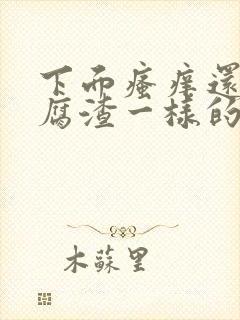 下而瘙痒還
腐渣一樣的
木蘇里